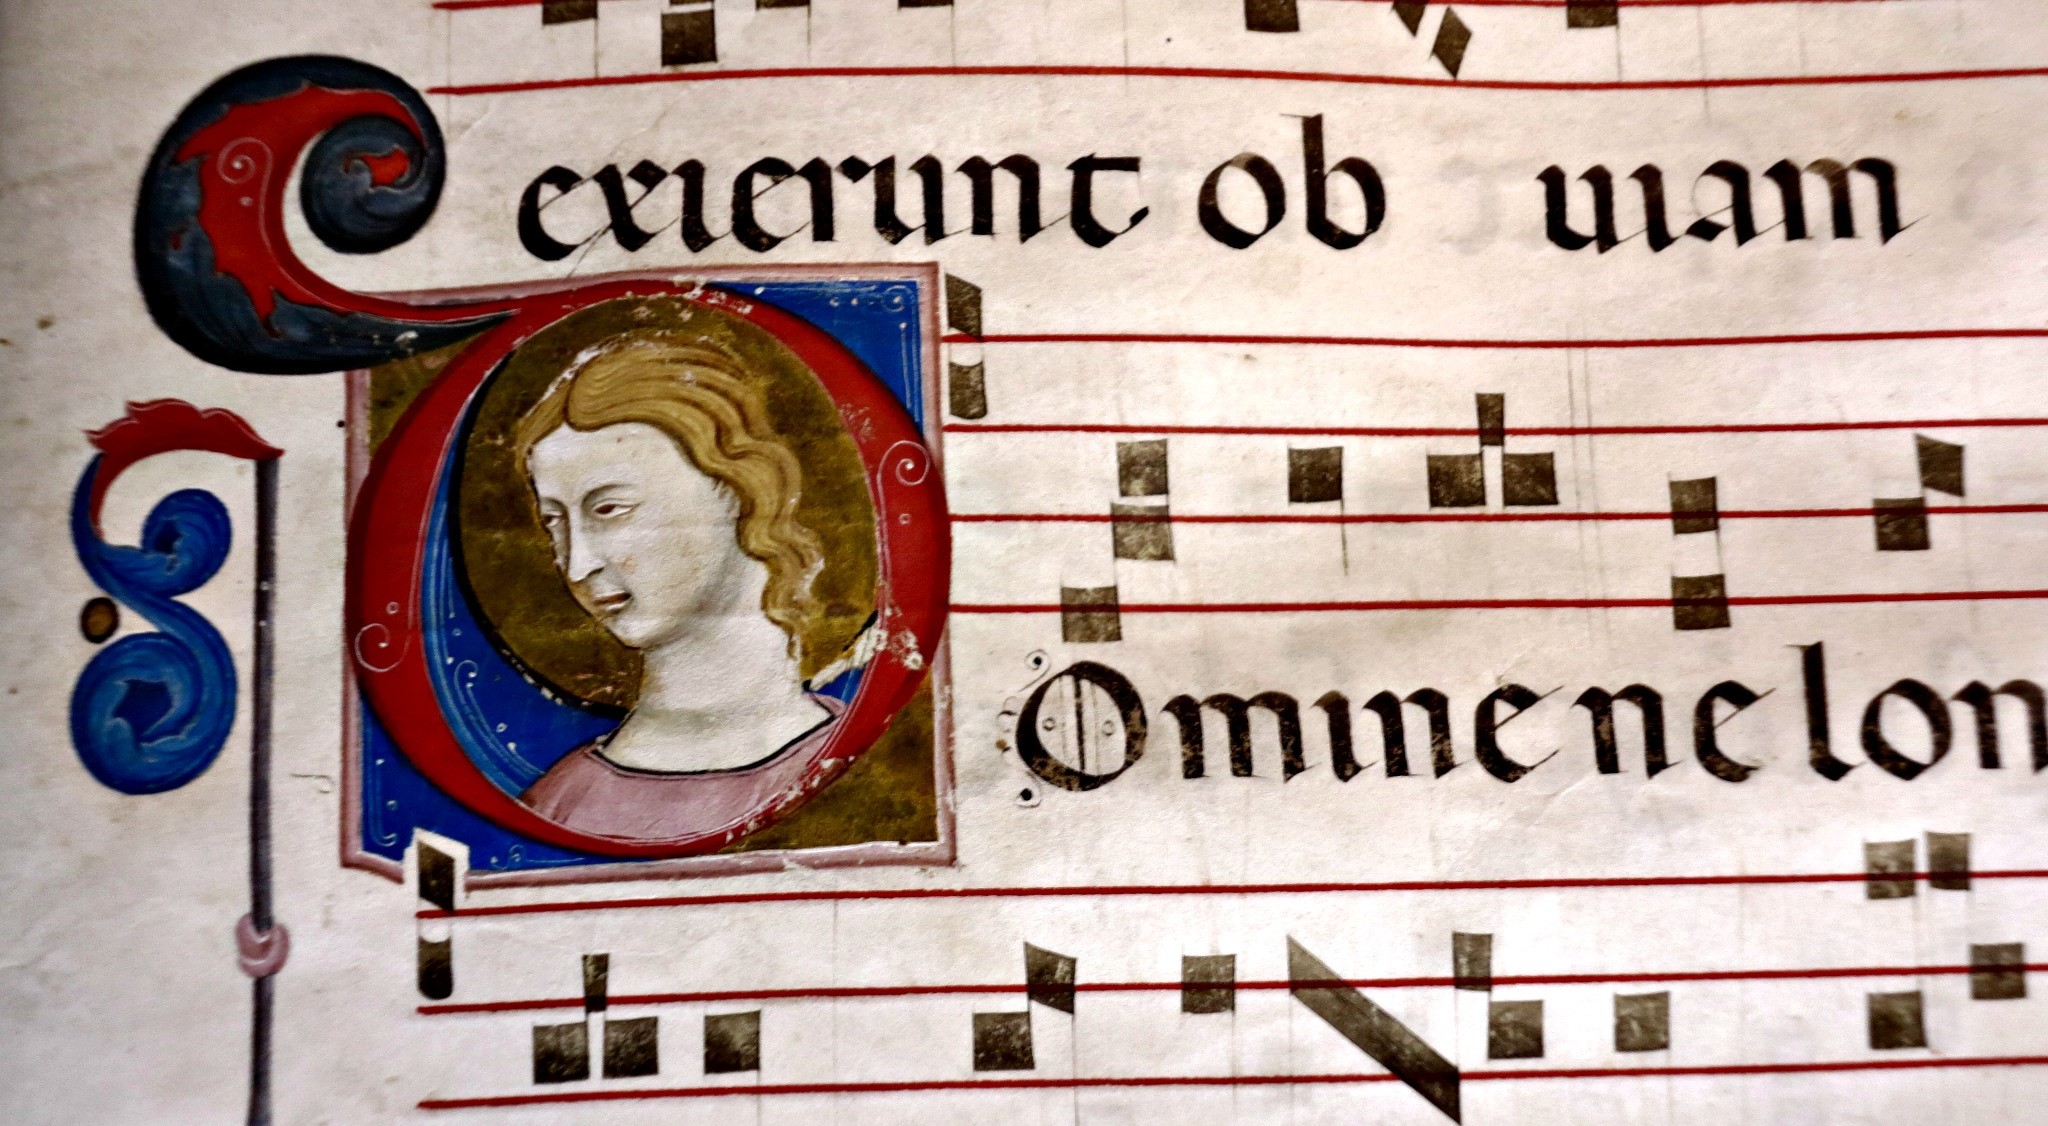 exierunt ob uiam
DOmine ne lon